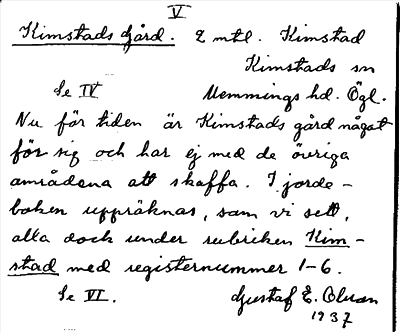 V
Kimstads Gård. 2 mtl. Kimstad
Kimstads sn
Se IV Memmings hd. Ögl.
Nu för tiden är Kimstads gård något
för sig och har ej med de övriga
områdena att skaffa. I jorde-
boken uppräknas, som vi sett,
alla dock under rubriken Kim-
stad med registernummer 1-6.
Se VI. Gustaf E. Olsson
1937